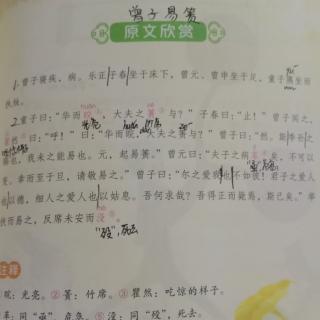 曾子易箦
原文欣赏
1.曾子寝疾，病。乐正子春坐于床下，曾元、曾申坐于足，童子隅坐而
执烛。
2.童子曰：“华而睆，大夫之箦与？”子春曰：“止！”曾子闻之，
瞿然曰：“呼！”曰：“华而睆，大夫之箦与？”曾子曰：“然。斯季孙之
赐也，我未之能易也。元，起易箦。”曾元曰：“夫子之病革矣，不可以
变。幸而至于旦，请敬易之。”曾子曰：“尔之爱我也不如彼！君子之爱人
也以德，细人之爱人也以姑息。吾何求哉？吾得正而毙焉，斯已矣。”举
扶而易之，反席未安而没。
“殁”，死去
注释
①睆：光亮。②箦：竹席。③瞿然：吃惊的样子。
革：同“亟”，危急。⑤没：同“殁”，死去。